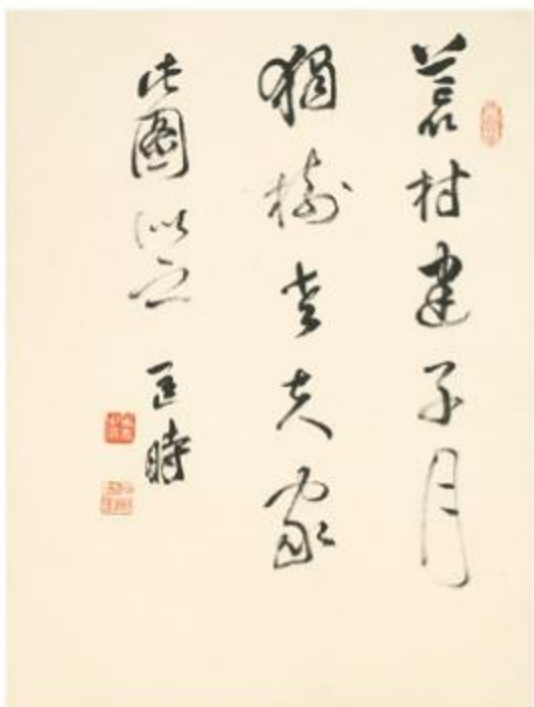 荒村建子月
獨樹老夫家
此圖似之 匡時